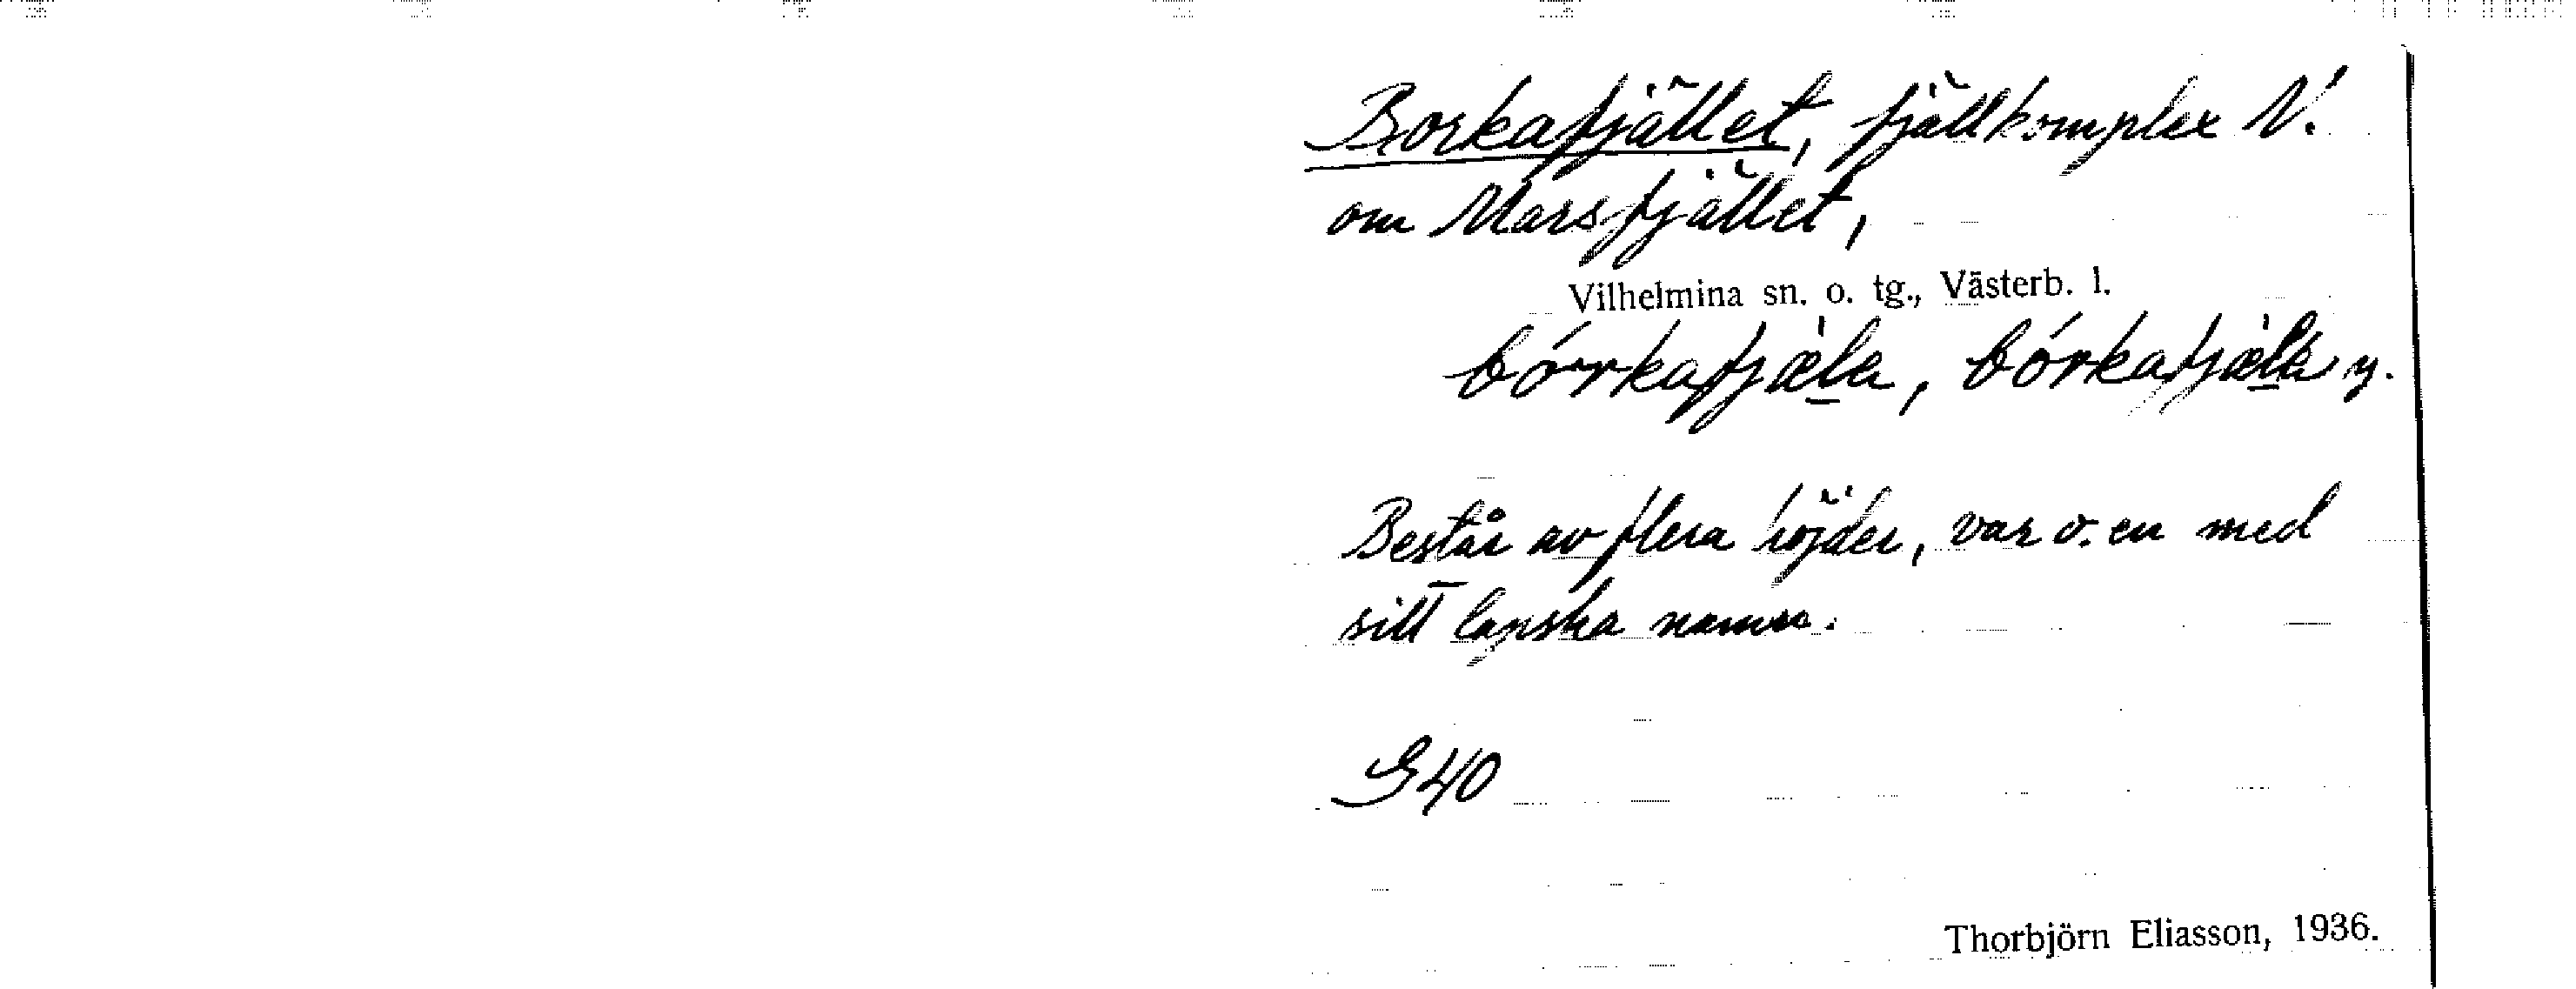 Borkafjället, fjällkomplex N.
om Marsfjället,
Vilhelmina sn. o. tg., Västerb. l.
bórkafjæla, bórkafjæla y.
Består av flera höjder, var o. en med
sitt lapska namn.
S40
Thorbjörn Eliasson, 1936.